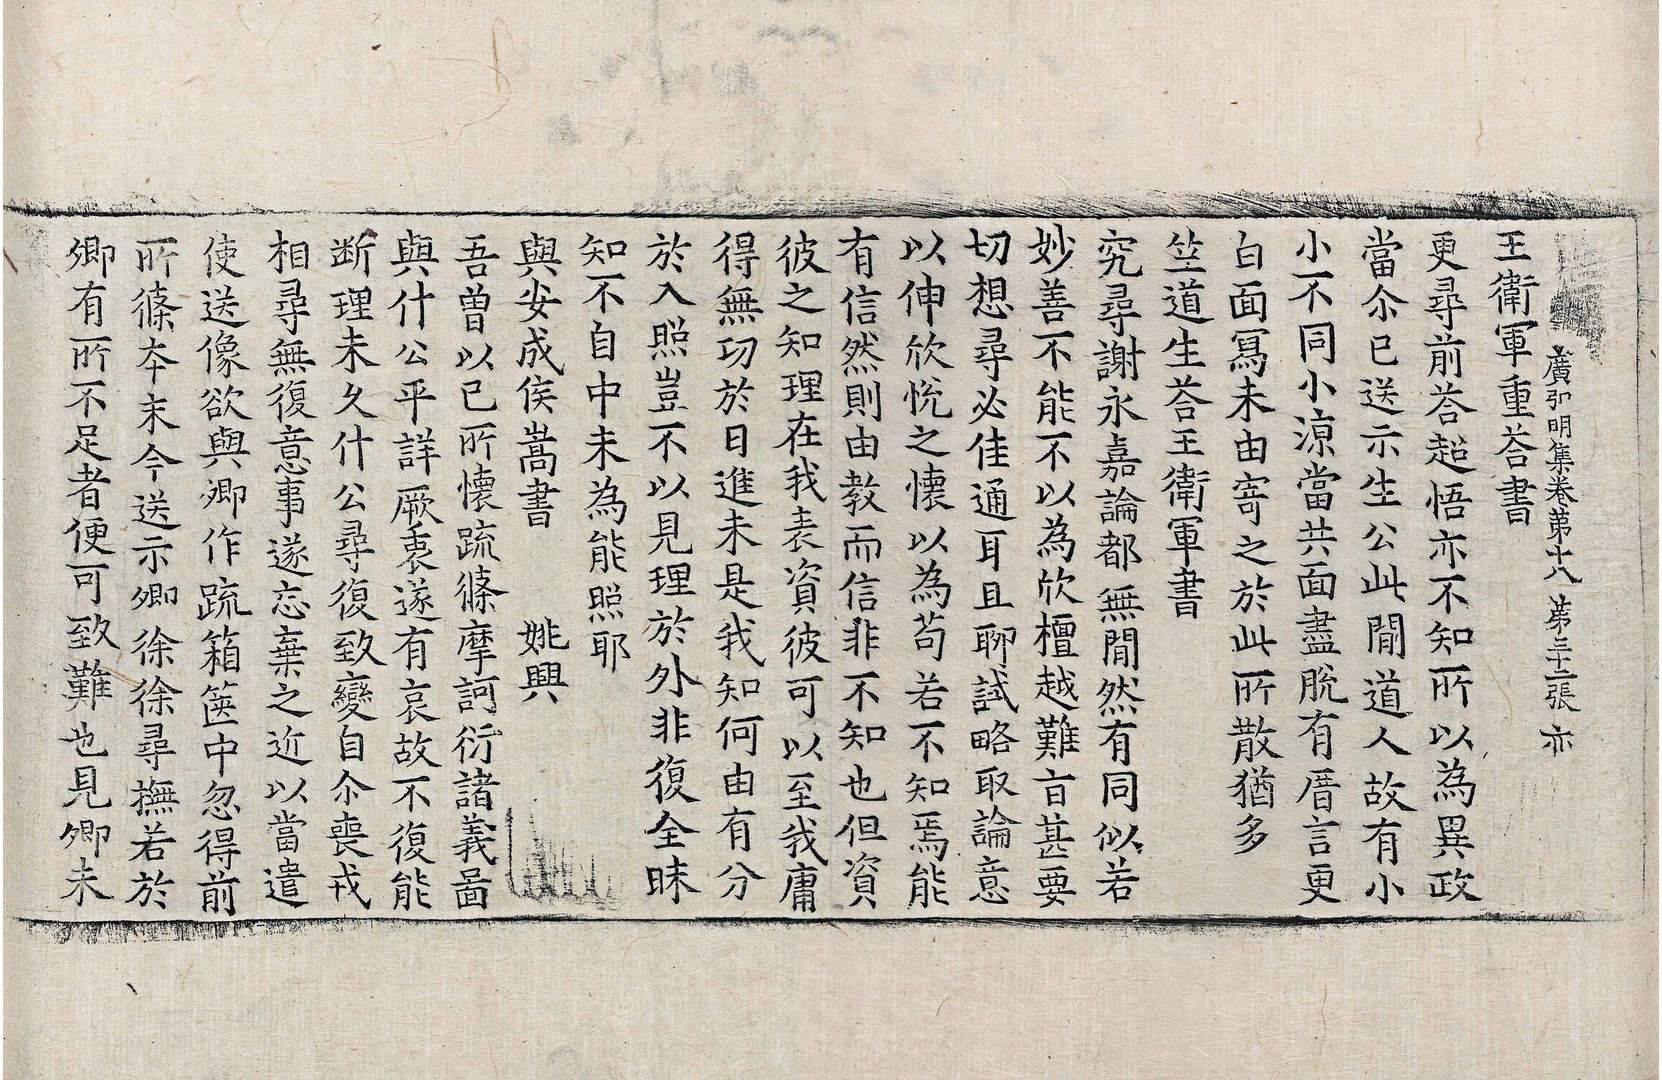 廣弘明集卷第十八　第三十二張　亦
王衛軍重荅書
更尋前荅超悟亦不知所以為異政
當尒已送示生公此閒道人故有小
小不同小涼當共面盡脫有厝言更
白面寫未由寄之於此所散猶多
竺道生荅王衛軍書
究尋謝永嘉論都無閒然有同似若
妙善不能不以為欣檀越難旨甚要
切想尋必佳通耳且聊試略取論意
以伸欣悅之懷以為苟若不知焉能
有信然則由教而信非不知也但資
彼之知理在我表資彼可以至我庸
得無功於日進未是我知何由有分
於入照豈不以見理於外非復全昧
知不自中未為能照耶
與安成侯嵩書　　姚興
吾曾以已所懷疏條摩訶衍諸義啚
與什公平詳厥衷遂有哀故不復能
断理未久什公尋復致變自尒喪戎
相尋無復意事遂忘棄之近以當遣
使送像欲與卿作疏箱篋中忽得前
所條夲末今送示卿徐徐尋撫若於
卿有所不足者便可致難也見卿未